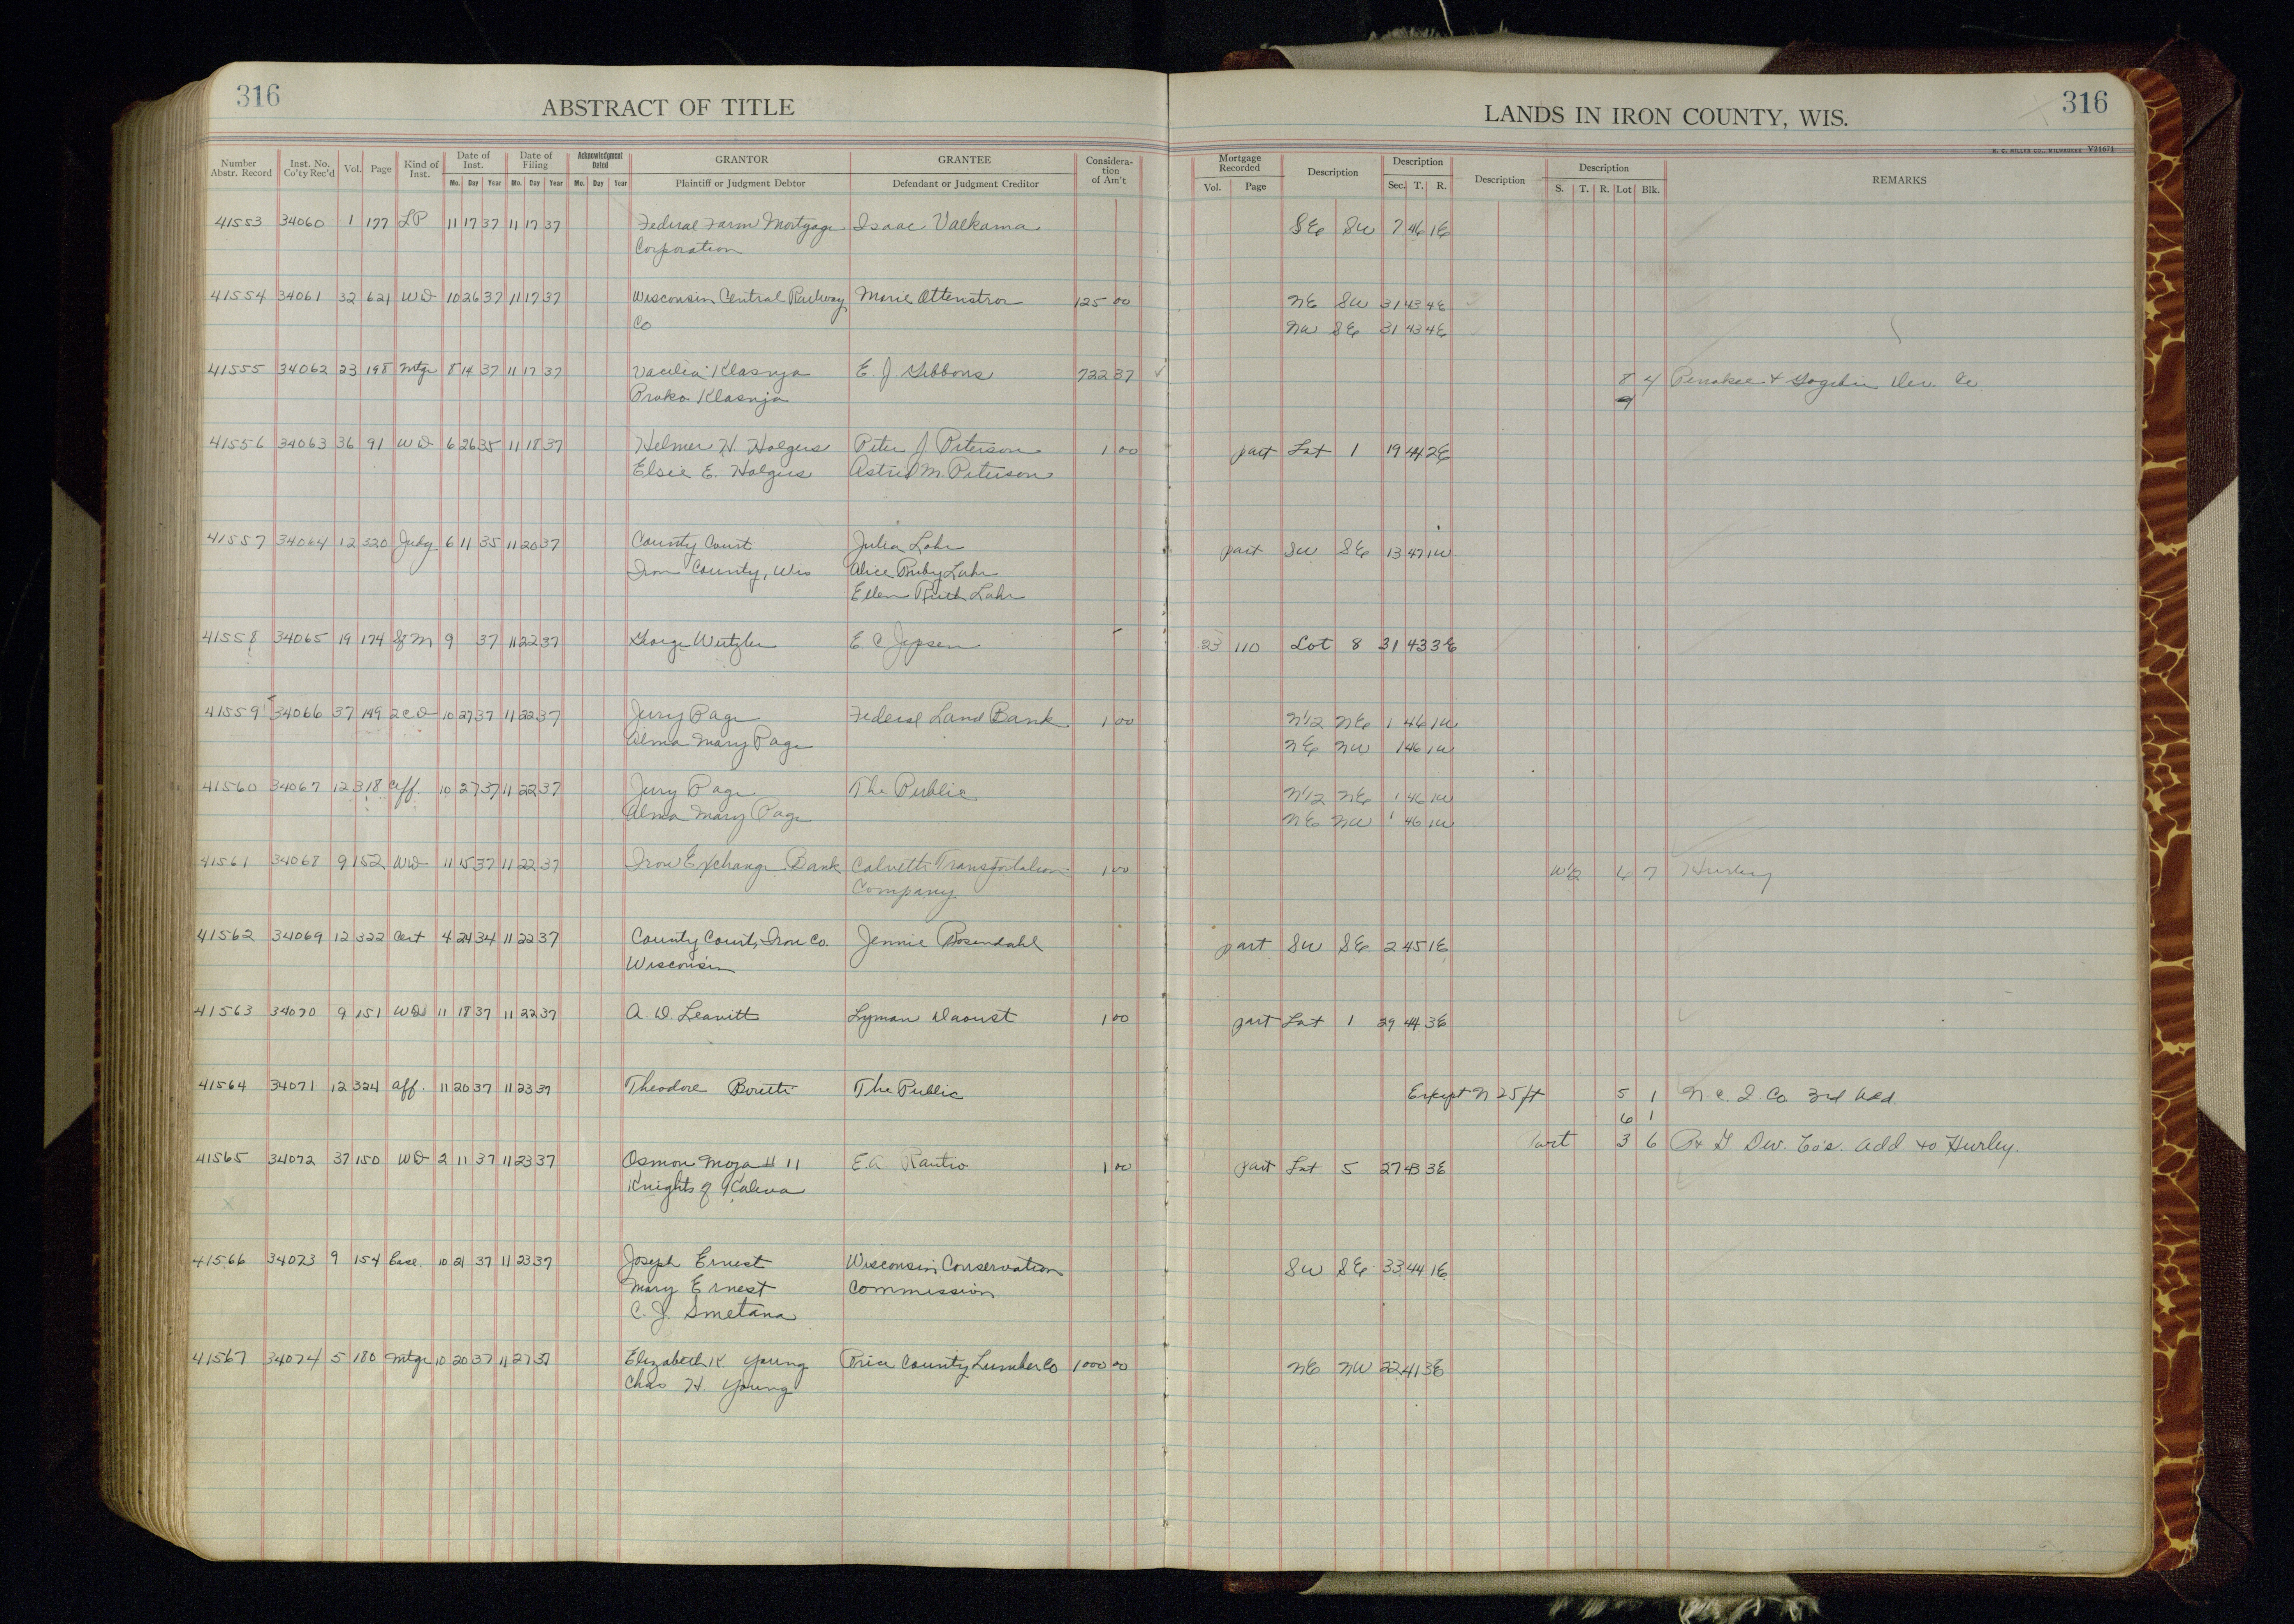 316
ABSTRACT OF TITLE
LANDS IN IRON COUNTY, WIS.
316
V21671
Number Abstr. Record Inst. No. Co'ty Rec'd Vol. Page Kind of Inst. Date of Inst. Mo. Day Year Date of Filing Mo. Day Year Acknowledgment Dated Mo. Day Year GRANTOR Plaintiff or Judgment Debtor GRANTEE Defendant or Judgment Creditor Consideration of Am't Mortgage Recorded Vol. Page Description Description Sec. T. R. Description Description S. T. R. Lot Blk. REMARKS
41553 34060 1 177 LP 11 17 37 11 17 37 Federal Farm Mortgage Isaac Valkama SE SW 7 46 1E
Corporation
41554 34061 32 621 WD 10 26 37 11 17 37 Wisconsin Central Railway Marie Ottenstror 125 00 NE SW 31 43 4E
Co NW SE 31 43 4E
41555 34062 23 198 Mtge 8 14 37 11 17 37 Vacilia Klasnja E. J. Gibbons 722 37 8 4 Penokee & Gogebic Dev. Co
Prako Klasnja 9
41556 34063 36 91 WD 6 26 35 11 18 37 Helmer H. Holgers Peter J Peterson 1 00 part Lot 1 19 44 2E
Elsie E. Holgers Astrid M. Peterson
41557 34064 12 320 Judg 6 11 35 11 20 37 County Court Julia Lahr part SW SE 13 47 1W
Iron County, Wis Alice Ruby Lahr
Ellen Ruth Lahr
41558 34065 19 174 Sf M 9 37 11 22 37 George Wetzler E C Jepsen 23 110 Lot 8 31 43 3E
41559 34066 37 149 2CD 10 27 37 11 22 37 Jerry Page Federal Land Bank 1 00 N1/2 NE 1 46 1W
Alma Mary Page NE NW 1 46 1W
41560 34067 12 318 Aff. 10 27 37 11 22 37 Jerry Page The Public N1/2 NE 1 46 1W
Alma Mary Page NE NW 1 46 1W
41561 34068 9 152 WD 11 15 37 11 22 37 Iron Exchange Bank Calvetti Transportation 1 00 W1/2 6 7 Hurley
Company
41562 34069 12 322 Cert 4 24 34 11 22 37 County Court, Iron Co. Jennie Rosendahl part SW SE 2 45 1E
Wisconsin
41563 34070 9 151 WD 11 18 37 11 22 37 A. D. Leavitt Lyman Daoust 1 00 part Lot 1 29 44 3E
41564 34071 12 324 Aff. 11 20 37 11 23 37 Theodore Boretti The Public Except N 25 ft 5 1 N. C. I. Co. 3rd Add.
6 1
Part 3 6 P & G Dev. Co's. Add to Hurley.
41565 34072 37 150 WD 2 11 37 11 23 37 Osmon Moja # 11 E.A. Rautio 1 00 part Lot 5 27 43 3E
Knights of Kaleva
X
41566 34073 9 154 Ease. 10 21 37 11 23 37 Joseph Ernest Wisconsin Conservation SW SE 33 44 1E
Mary Ernest Commission
C. J. Smetana
41567 34074 5 180 Mtge 10 20 37 11 27 37 Elizabeth K Young Price County Lumber Co 1000 00 NE NW 22 41 3E
Chas H. Young